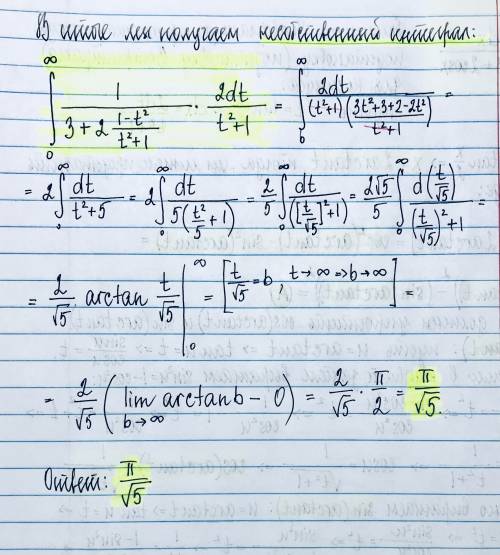 В итоге мы получаем несобственный интеграл:
∞∫0 1/(3 + 2 (1-t²)/(t²+1)) · 2dt/(t²+1) = ∞∫0 2dt/((t²+1)((3t²+3+2-2t²)/(t²+1))) =
= 2 ∞∫0 dt/(t²+5) = 2 ∞∫0 dt/(5(t²/5 + 1)) = 2/5 ∞∫0 dt/([t/√5]²+1) = 2√5/5 ∞∫0 d(t/√5)/((t/√5)²+1) =
= 2/√5 arctan t/√5 |∞0 = [t/√5 = b, t→∞ ⇒ b→∞] =
= 2/√5 (lim b→∞ arctan b - 0) = 2/√5 · π/2 = π/√5.
Ответ: π/√5